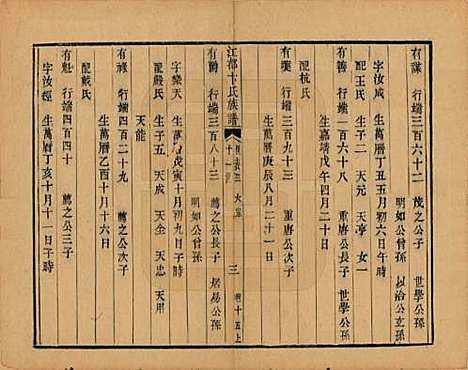 有謀 行端三百六十二 茂之公子 以治公玄孫
字汝成 生萬曆丁丑五月初六日午時
配王氏 生子二 天元 天亭 女一
有善 行端一百六十八 重唐公長子 世學公孫
生嘉靖戊午四月二十日
配杭氏
有漢 行端三百九十三 重唐公次子 世學公孫
生萬曆庚辰八月二十一日
江都卞氏族譜
十一世
三
有爵 行端三百八十三 蘭之公長子 居易公孫
明如公曾孫
字樂天 生萬曆戊寅十月初九日子時
配嚴氏 生子五 天成 天全 天忠 天用
天能
有祿 行端四百二十九 蘭之公次子
生萬曆乙酉十月十六日
配戴氏
有魁 行端四百四十 蘭之公三子
明如公曾孫
字汝經 生萬曆丁亥十月十一日子時